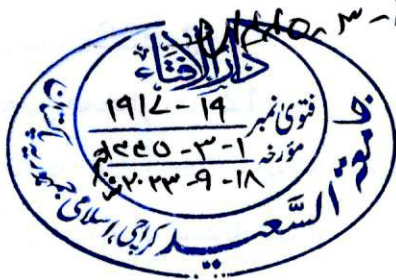 دارالافتاء
فتویٰ نمبر ۱۹-۱۹۱۷
مؤرخہ ۱-۳-۱۴۴۵ھ
۱۸-۹-۲۰۲۳ء
جامعۃ السَّعید کراچی، اسلامی جمہوریہ پاکستان